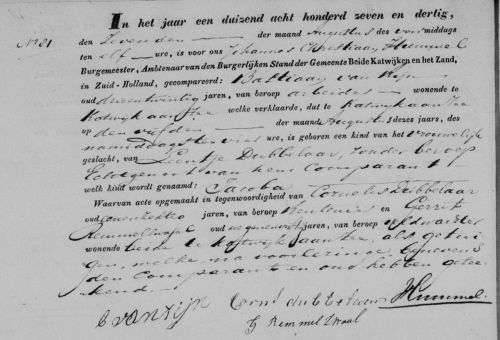 No 31
In het jaar een duizend acht honderd zeven en dertig,
den Zevenden der maand Augustus des voormiddags
ten elf ure, is voor ons Johannes Christiaan Hummel
Burgemeester, Ambtenaar van den Burgerlijken Stand der Gemeente Beide Katwijken en het Zand,
in Zuid-Holland, gecompareerd: Bastiaan van Rijn
oud drieentwintig jaren, van beroep arbeider wonende te
Katwijk aan Zee welke verklaarde, dat te Katwijk aan Zee
op den vijfden der maand Augustus dezes jaars, des
namiddags ten vier ure, is geboren een kind van het vrouwelijk
geslacht, van Leentje Dubbelaar, zonder beroep
Echtgenoot van hem Comparant
welk kind wordt genaamd: Jacoba
Waarvan acte opgemaakt in tegenwoordigheid van Cornelis Dubbelaar
oud jaren, van beroep en Gerrit
Remmelzwaal oud jaren, van beroep veldwachter
wonende beide te Katwijk aan Zee, als getui
gen, welke, na voorlezing, benevens
den Comparant en ons hebben getee
kend.
B van Rijn Corns dubbelaar JHummel
G Remmelzwaal